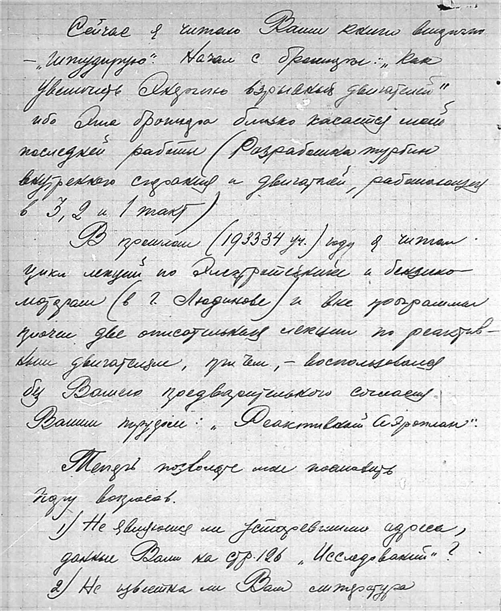 Сейчас я читаю Ваши книги вплотную
– „Штудирую" Начал с брошюры: „Как
увеличить Энергию взрывных двигателей"
ибо Эта брошюра близко касается моей
последней работы (Разработка турбин
внутреннего сгорания и двигателей, работающих
в 3, 2 и 1 такт)
В прошлом (193334 уч.) году я читал
цикл лекций по Электротехнике и бензино-
моторам (в г. Людинове) и вне программы
прочел две описательных лекции по реактив-
ным двигателям, при чем, – воспользовался
без Вашего предварительного согласия
Вашим трудом: „Реактивный Аэроплан".
Теперь позвольте мне поставить
пару вопросов.
1) Не являются ли устаревшими адреса,
данные Вами на стр. 126 „Исследований"?
2) Не известна ли Вам литература